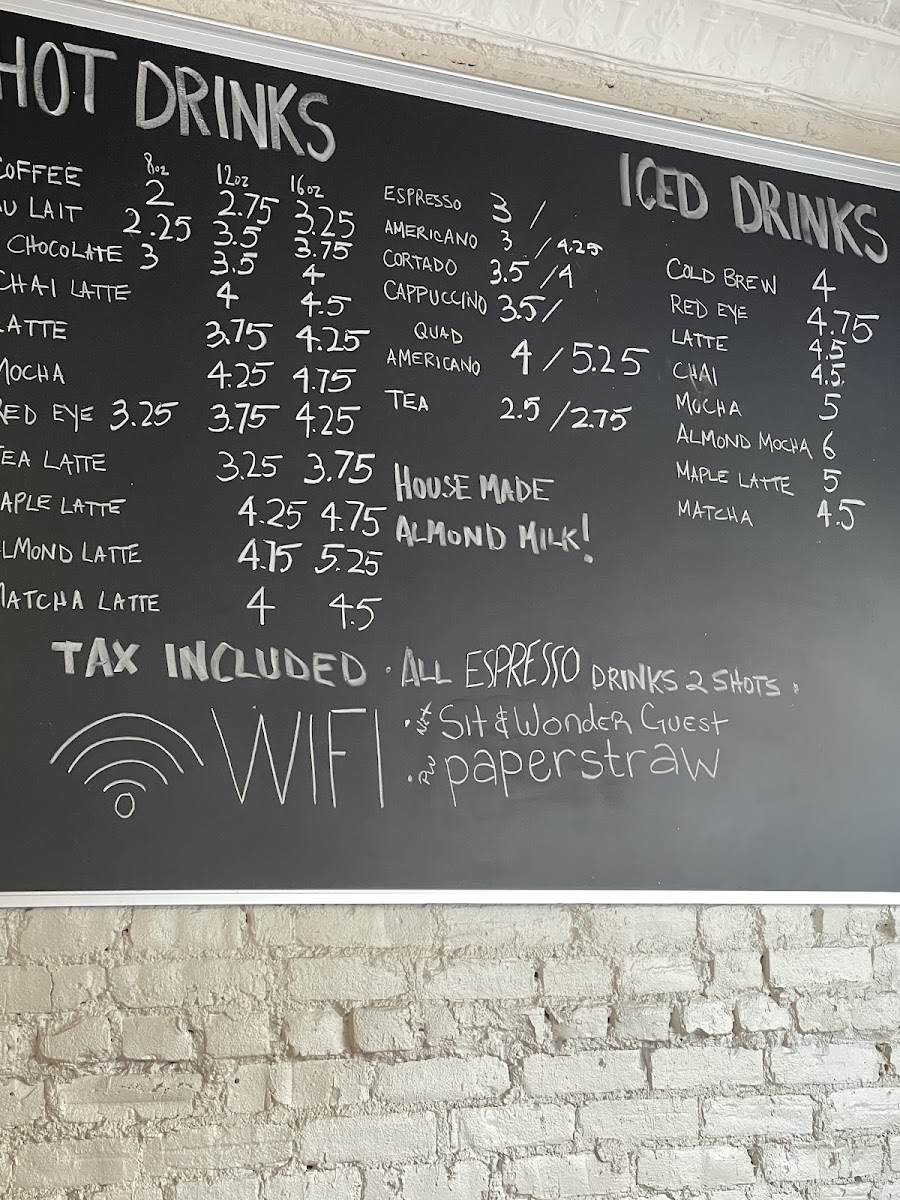 HOT DRINKS
8oz 12oz 16oz
COFFEE 2 2.75 3.25
AU LAIT 2.25 3.5 3.75
CHOCOLATE 3 3.5 4
CHAI LATTE 4 4.5
LATTE 3.75 4.25
MOCHA 4.25 4.75
RED EYE 3.25 3.75 4.25
TEA LATTE 3.25 3.75
MAPLE LATTE 4.25 4.75
ALMOND LATTE 4.75 5.25
MATCHA LATTE 4 4.5
ESPRESSO 3 /
AMERICANO 3 / 4.25
CORTADO 3.5 / 4
CAPPUCCINO 3.5 /
QUAD
AMERICANO 4 / 5.25
TEA 2.5 / 2.75
HOUSE MADE
ALMOND MILK!
ICED DRINKS
COLD BREW 4
RED EYE 4.75
LATTE 4.5
CHAI 4.5
MOCHA 5
ALMOND MOCHA 6
MAPLE LATTE 5
MATCHA 4.5
TAX INCLUDED · ALL ESPRESSO DRINKS 2 SHOTS ·
WIFI
· Net Sit & Wonder Guest
· PW paperstraw